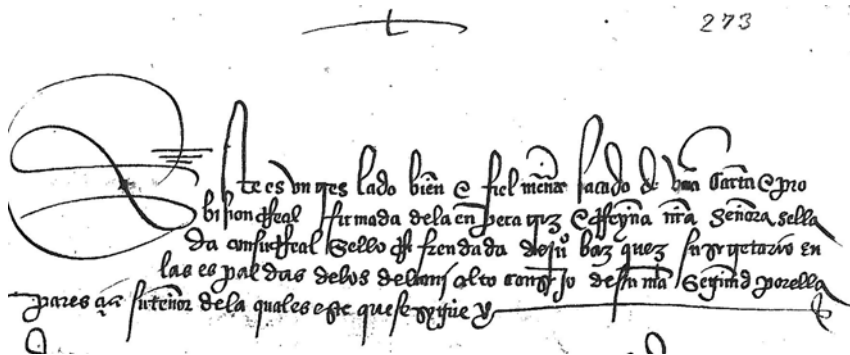 273
Este es un treslado bien e fiel mente sacado de una carta e pro
bision rreal firmada de la enperatriz e rreyna nra señora sella
da con su rreal sello e rrefrendada de juº bazquez su secretario en
las espaldas de los del muy alto consejo de su mag por ella
pares su tenor de la qual es este que se sigue